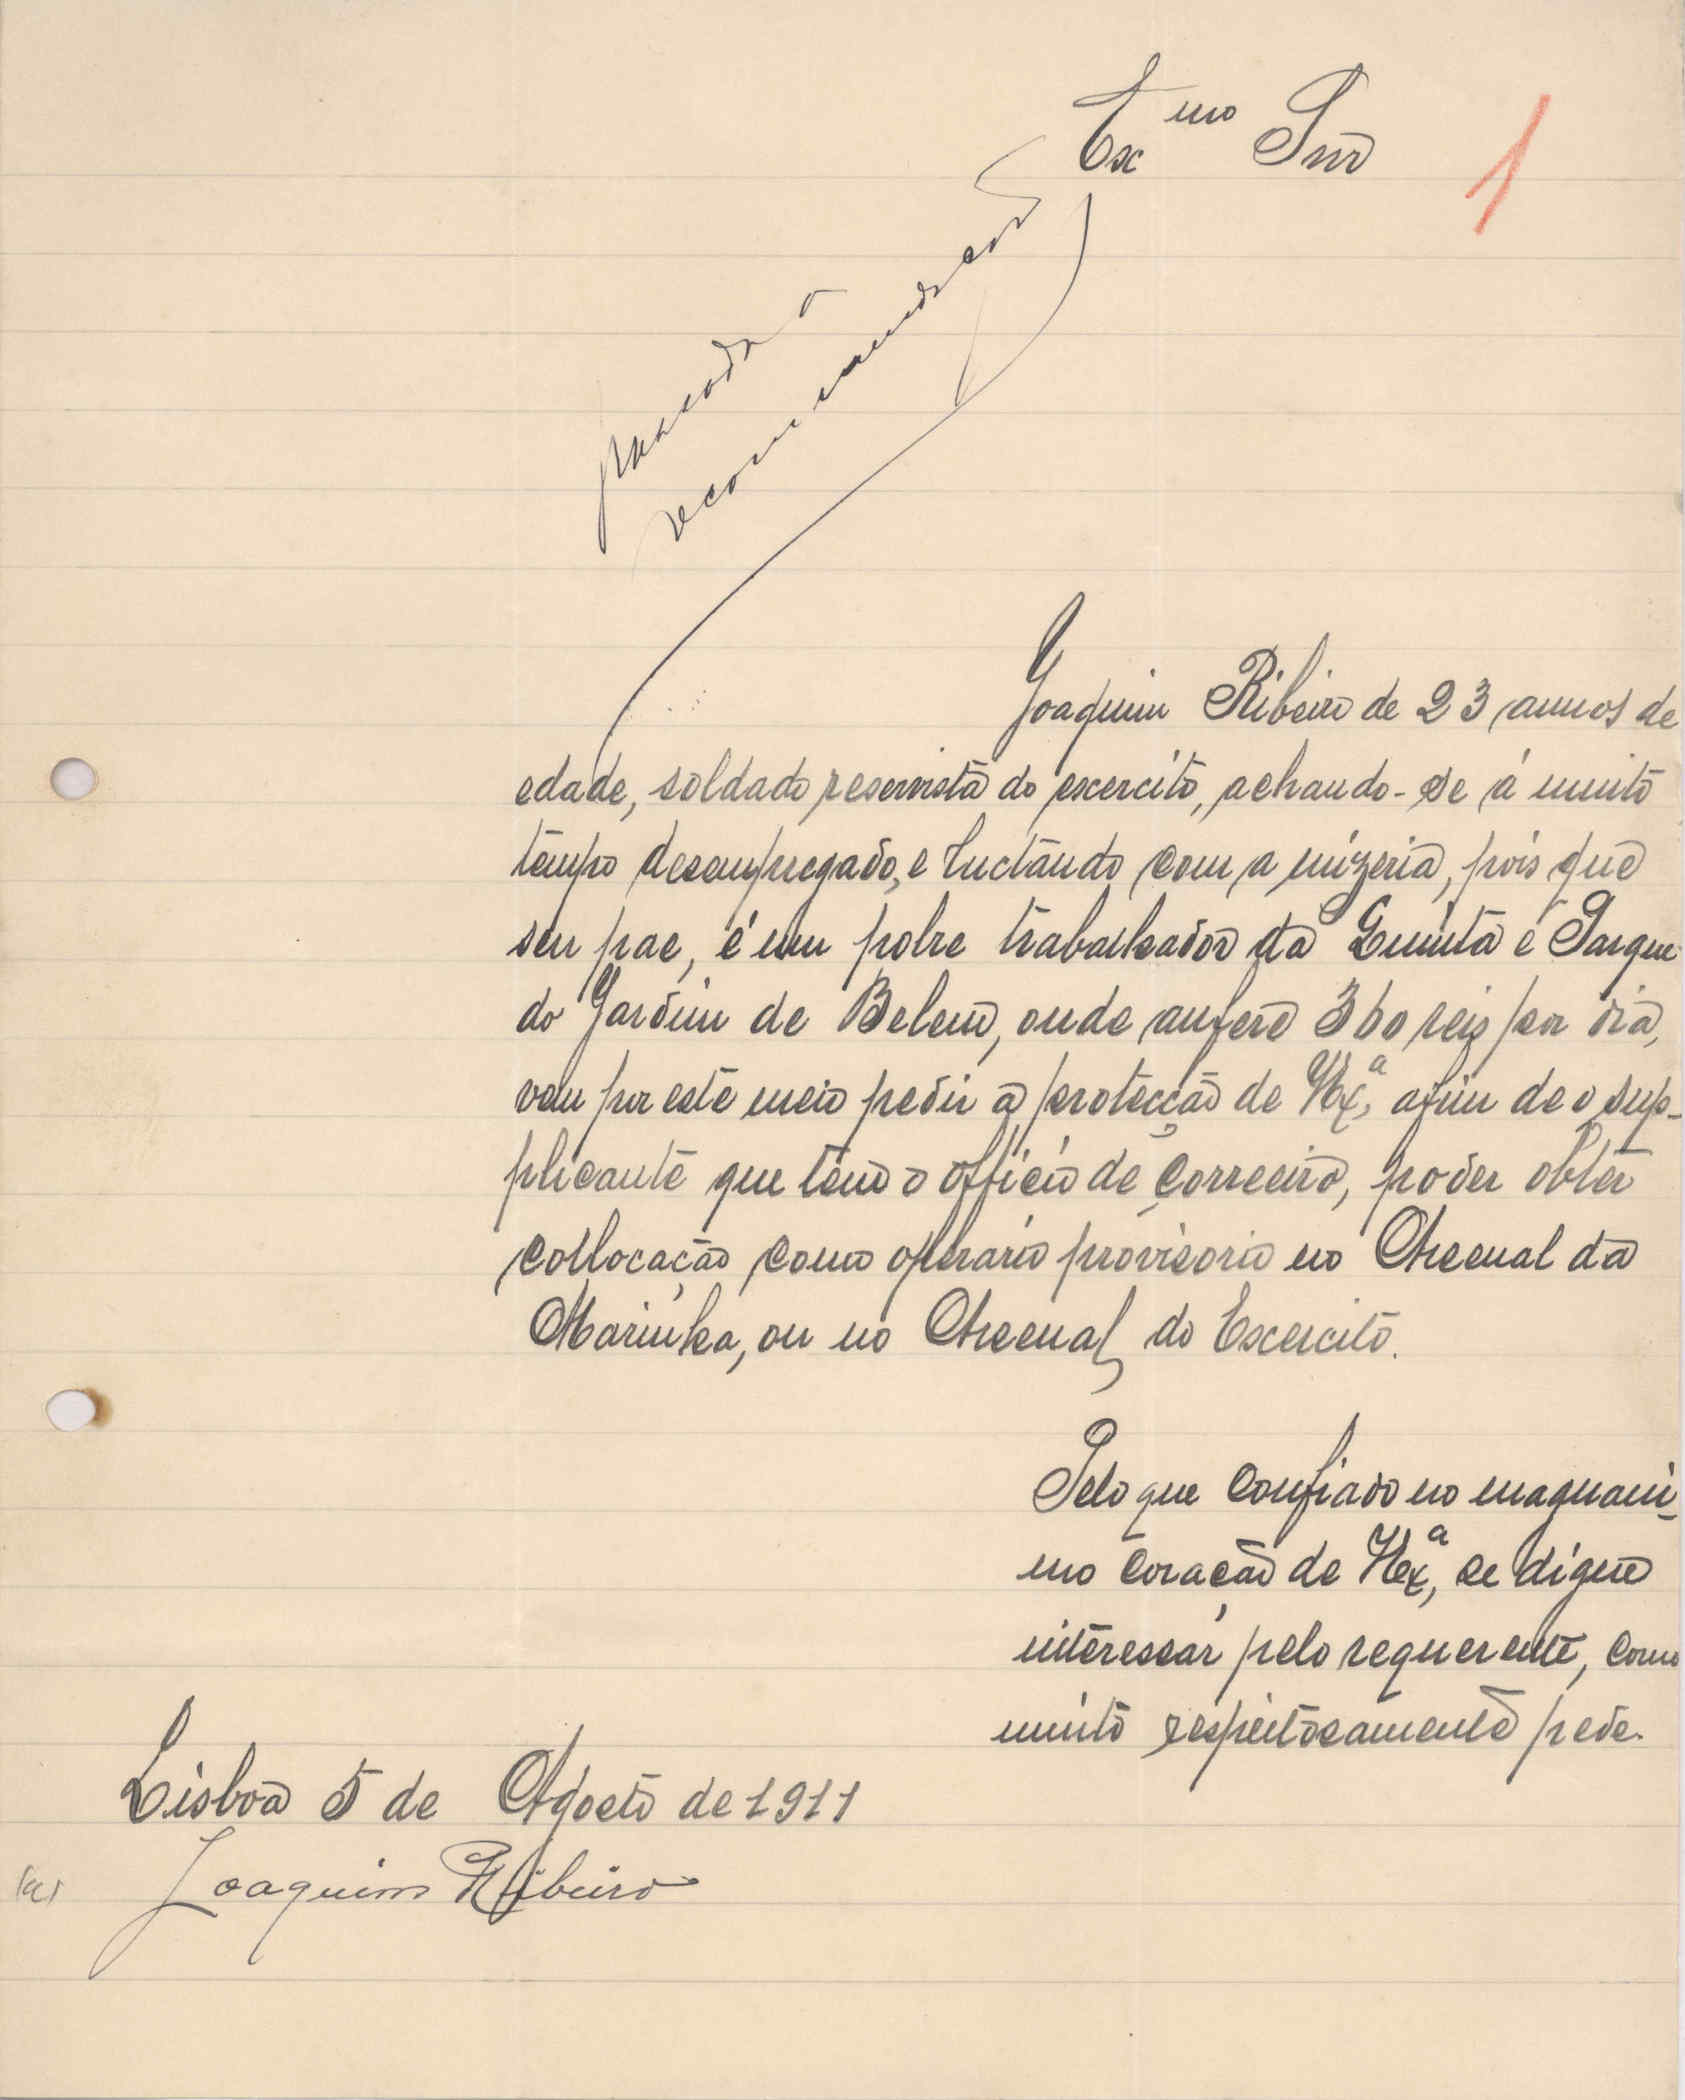 Exmo Snr
1
recommendação
Joaquim Ribeiro de 23 annos de
edade, soldado reservista do excercito, achando-se á muito
tempo desempregado, e luctando com a mizeria, pois que
seu pae, é um pobre trabalhador da Quinta e Parque
do Jardim de Belem, onde aufere 360 reis por dia,
vem por este meio pedir a protecção de V. Exª, afim de o sup-
plicante que tem o officio de Correeiro, poder obter
collocação como operario provisorio no Arsenal da
Marinha, ou no Arsenal do Excercito.
Pelo que confiado no magnani-
mo coração de V. Exª, se digne
interessar pelo requerente, como
muito respeitosamente pede.
Lisboa 5 de Agosto de 1911
(a) Joaquim Ribeiro